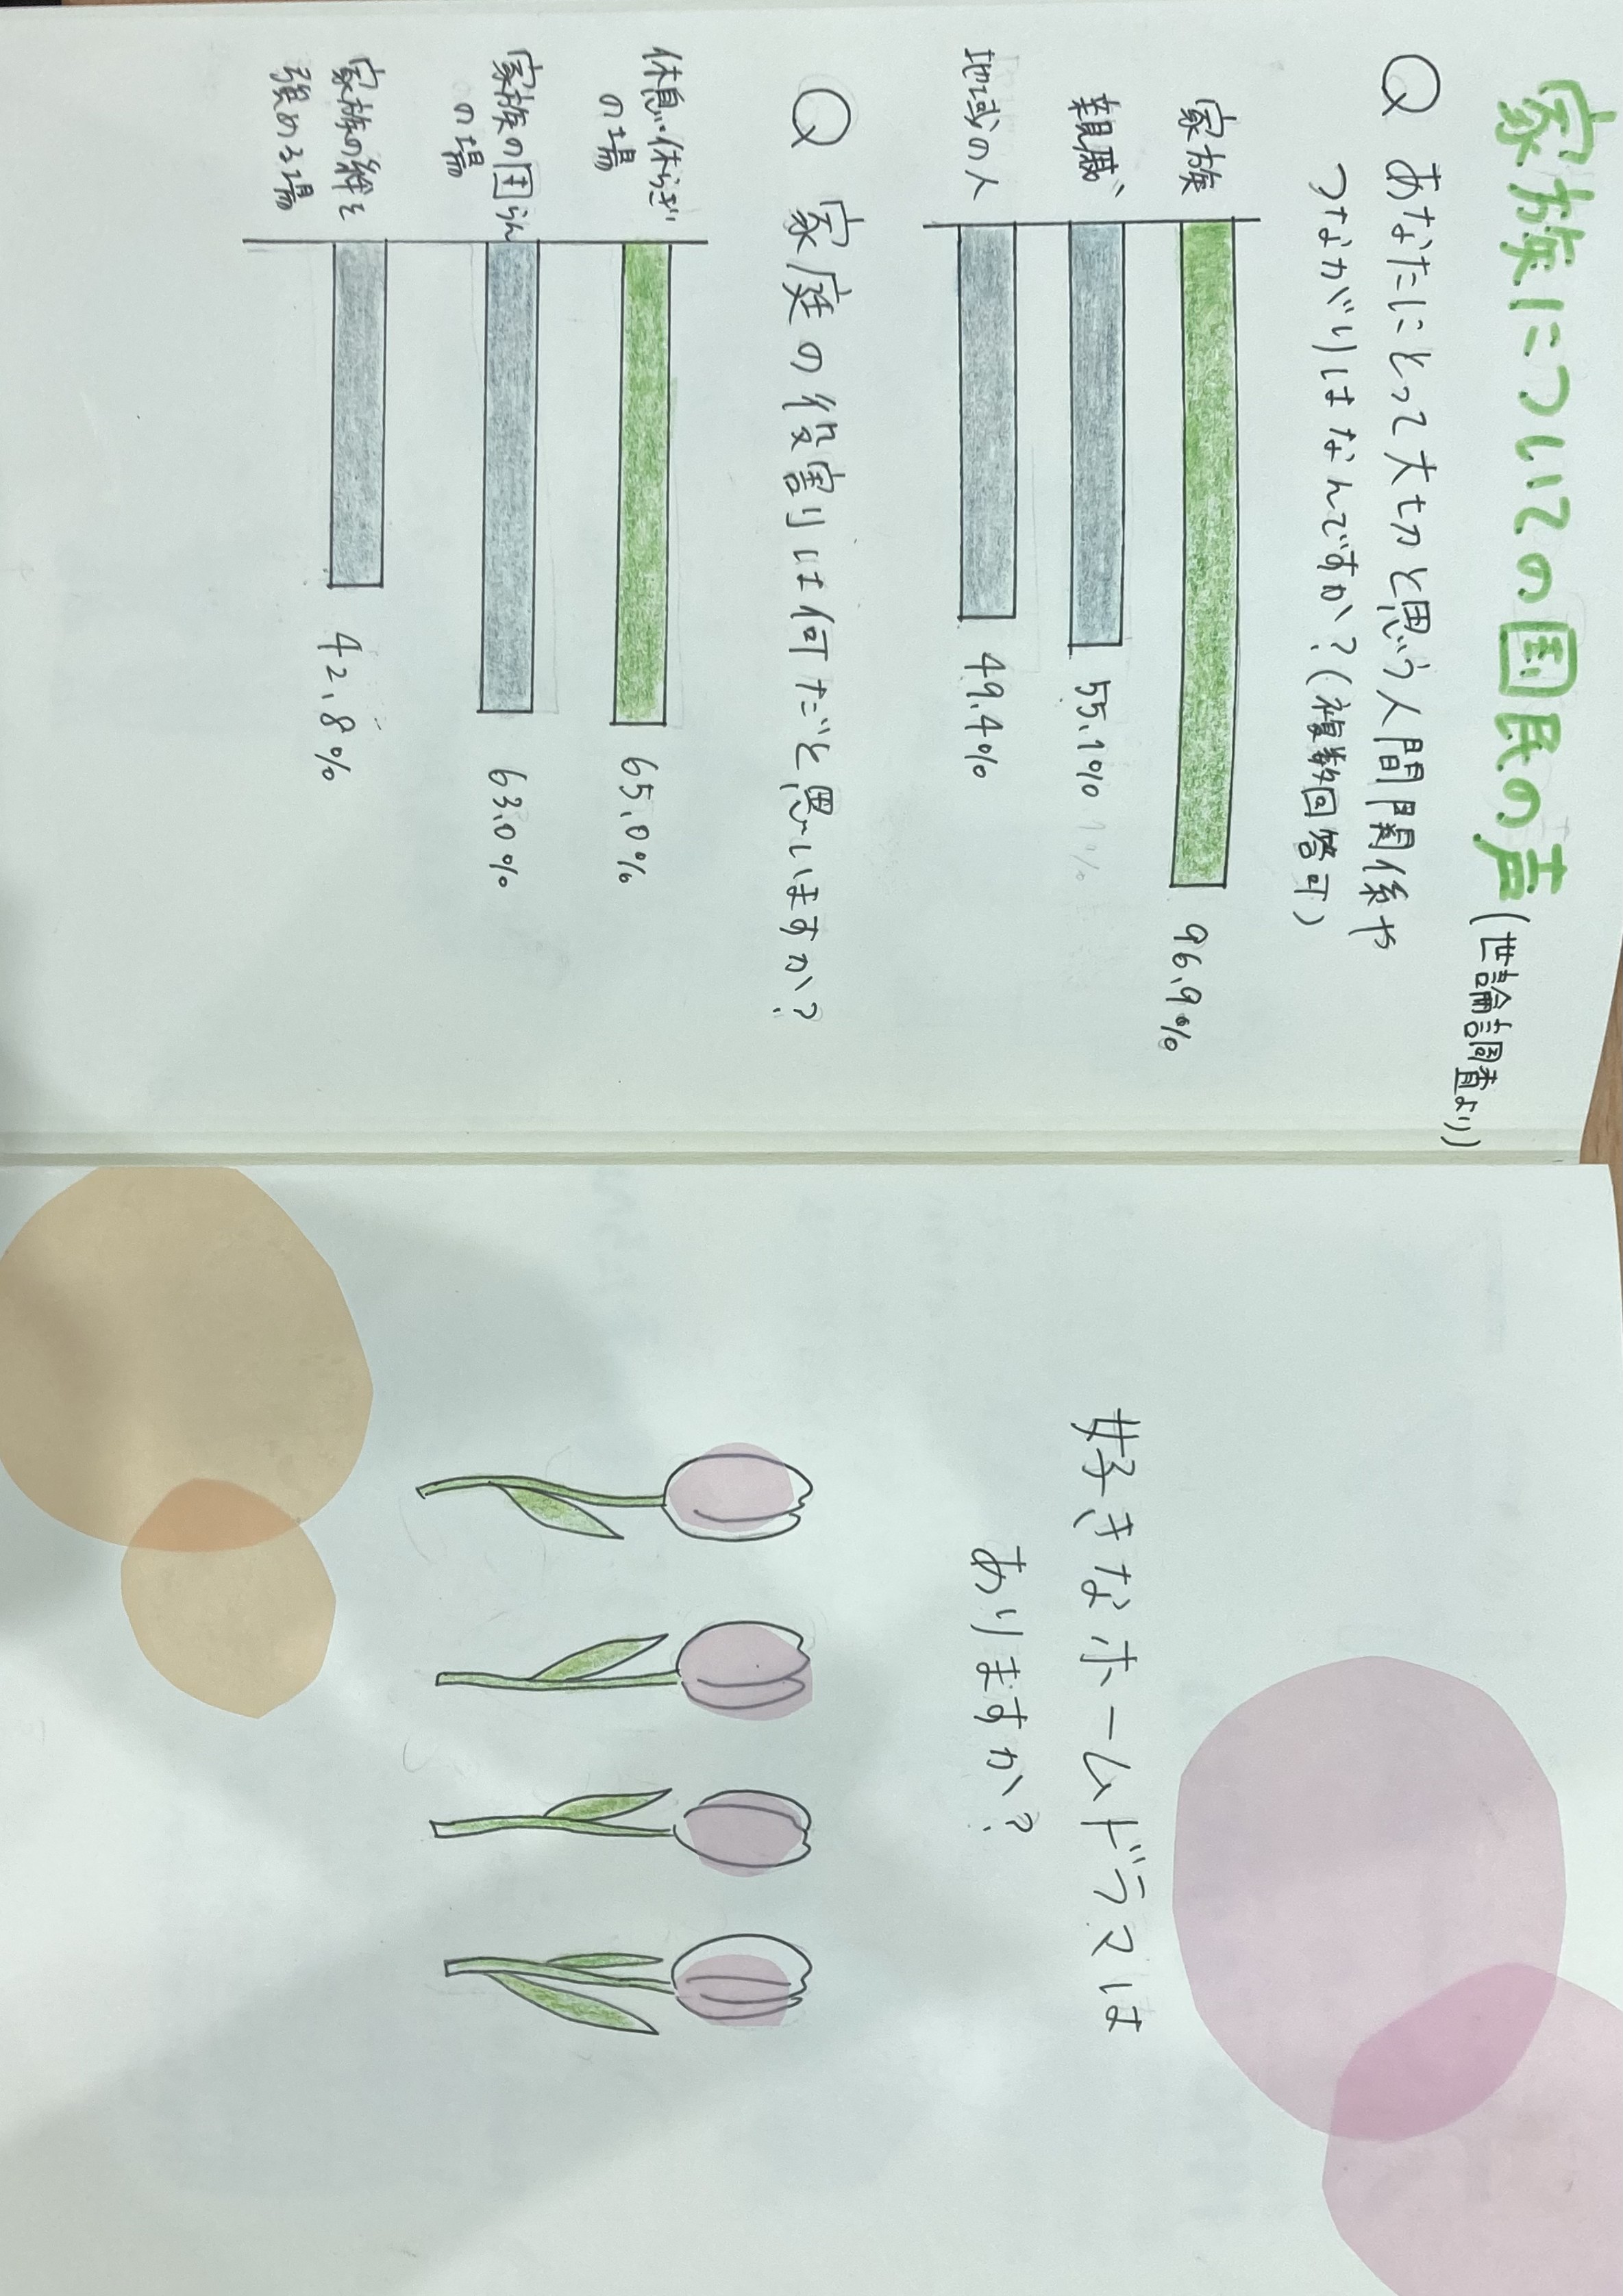 家族についての国民の声(世論調査より)
Q あなたにとって大切と思う人間関係や
つながりはなんですか?(複数回答可)
家族 96.9%
親戚 55.1%
地域の人 49.4%
Q 家庭の役割は何だと思いますか?
休息・休らぎ
の場 65.0%
家族の団らん
の場 63.0%
家族の絆を
強める場 42.8%
好きなホームドラマは
ありますか?